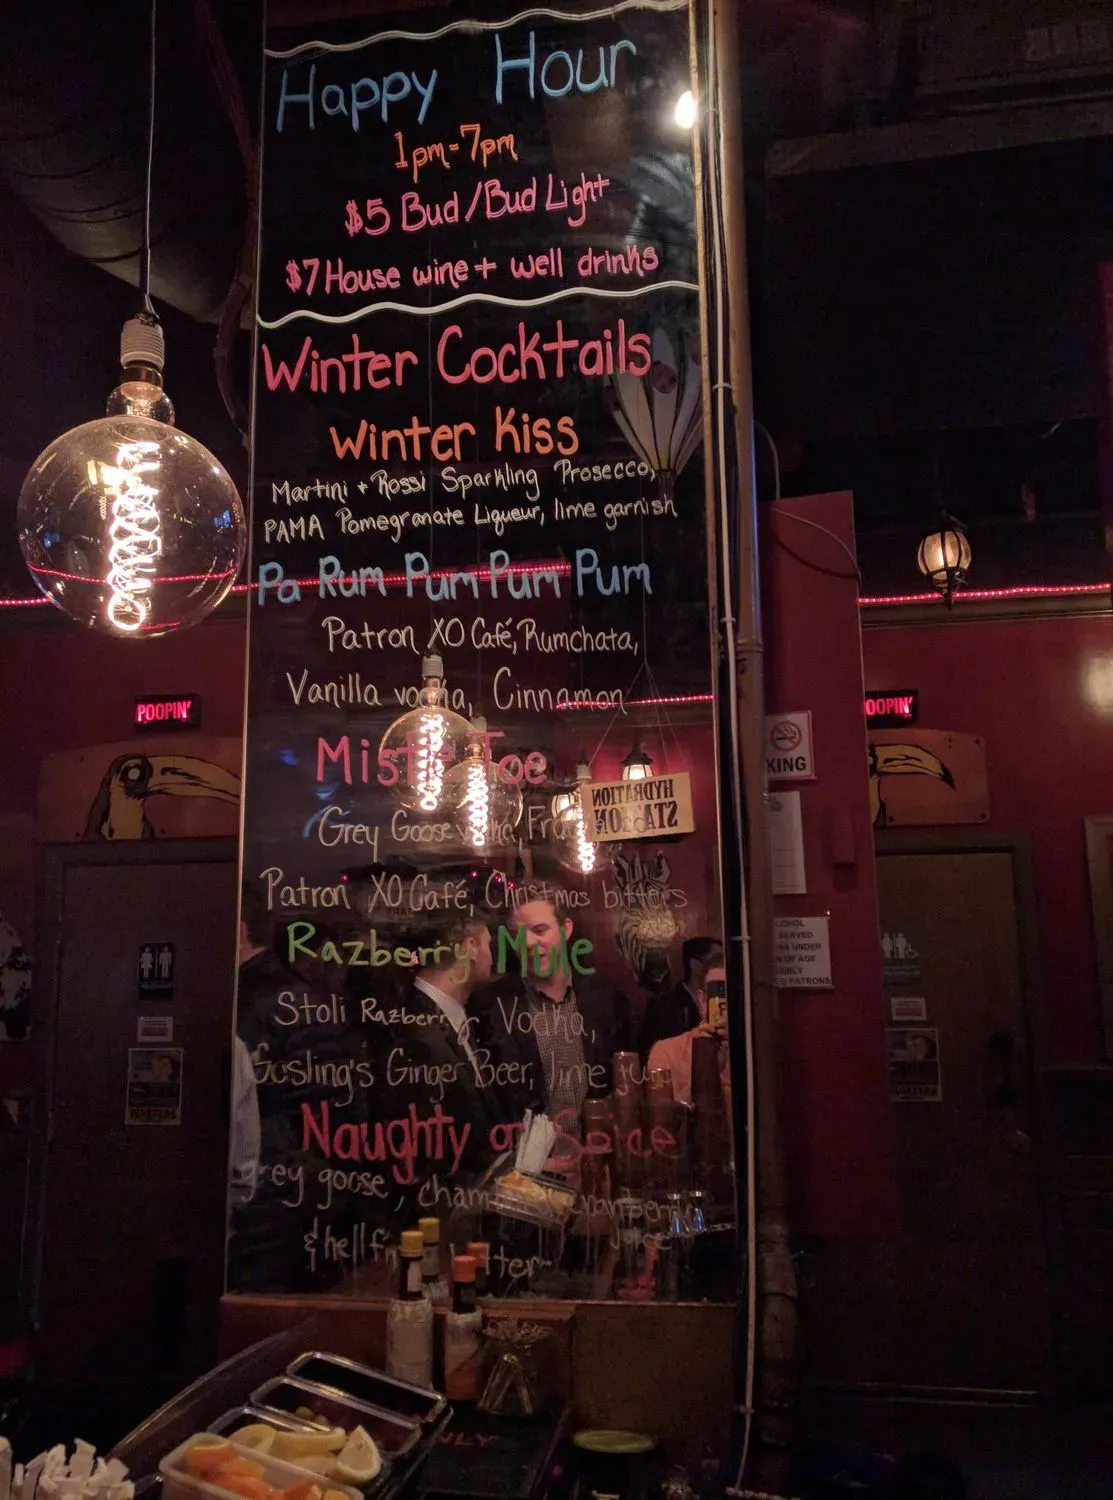 Happy Hour
1pm-7pm
$5 Bud/Bud Light
$7 House wine + well drinks
Winter Cocktails
Winter Kiss
Martini + Rossi Sparkling Prosecco,
PAMA Pomegranate Liqueur, lime garnish
Pa Rum Pum Pum Pum
Patron XO Café, Rumchata,
Vanilla vodka, Cinnamon
Mistle Toe
Grey Goose vodka,
Patron XO Café, Christmas bitters
Razberry Mule
Stoli Razberry Vodka,
Gosling's Ginger Beer, lime
Naughty or Spice
grey goose, cranberry
juice
&
POOPIN'
OOPIN'
HYDRATION
STATION
KING
COHOL
ERVED
UNDER
OF AGE
D PATRONS
NLY